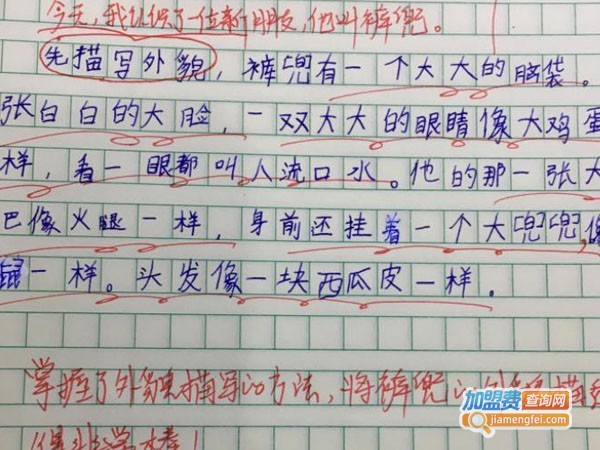 今天,我认识了一位新朋友,他叫裤兜。
先描写外貌,裤兜有一个大大的脑袋。
张白白的大脸,一双大大的眼睛像大鸡蛋
样,看一眼都叫人流口水。他的那一张大
巴像火腿一样,身前还挂着一个大兜兜,像
鼠一样。头发像一块西瓜皮一样。
掌握了外貌描写的方法,将裤兜的外貌描
得非常棒!
加盟费查询网
jiamengfei.com